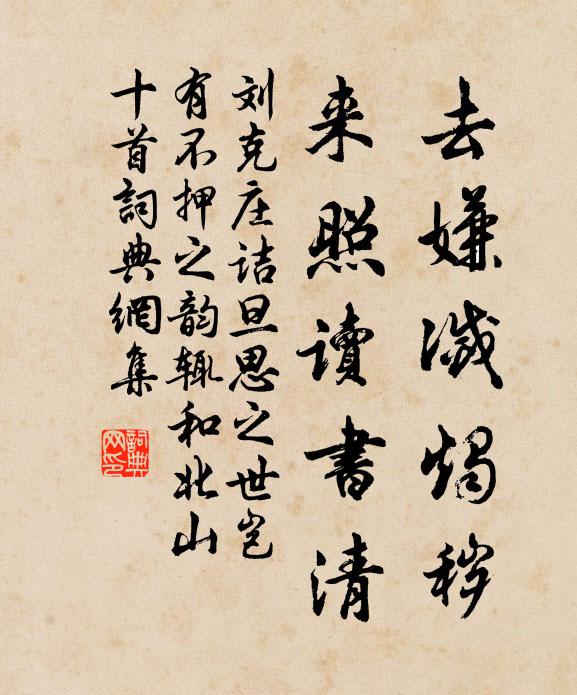 去嫌滅燭秽
来照讀書清
刘克庄诘旦思之世岂
有不押之韵辄和北山
十首詞典網集
詞典网印